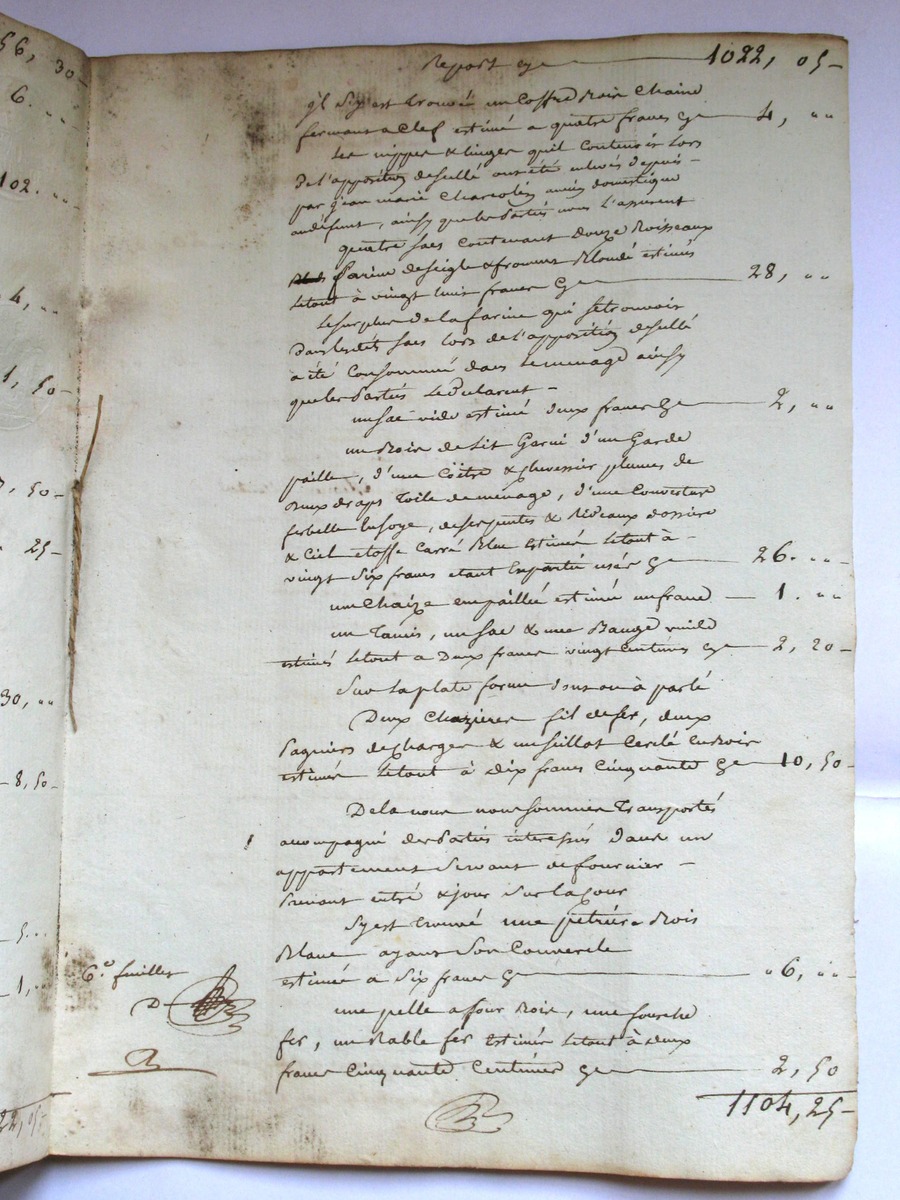 56, 30
6. ,,
102. ,,
4, ,,
1, 50-
, 50-
25-
30, ,,
8, 50-
5. ,,
1, ,,
22, 05-
Report cy 1022, 05-
s'est trouvé un Coffre Bois Chaine
fermant a Clef estimé a quatre francs cy 4, ,,
Les nippes & linges quil Contenoit Lors
De l'apposition des ont été enlevés depuis
par jean marie domestique
audefunt, ainsy que les Parties nous l'assurent
quatre sacs Contenant douze Boisseaux
farine de seigle & froment estimés
le tout à vingt huit francs Cy 28, ,,
Le surplus de la farine qui se trouvoit
Dans lesdits sacs lors de l'apposition
a été Consommé dans Le menage ainsy
que les Parties Le Declarent -
un sac vide estimé deux francs Cy 2, ,,
un Bois de Lit Garni d'un Garde
paille, d'une Coëtre & plumes de
Deux draps Toile de ménage, d'une Couverture
, de serpentes & Rideaux dossiere
& Ciel etoffe Carré Bleu Estimés Letout à -
vingt Six francs etant Enpartie usés Cy 26. ,,-
une Chaize empaillée estimée un franc 1. ,,
un Tamis, un sac & une
estimés Letout a Deux francs vingt Centimes cy 2, 20-
Sur La plate forme
Deux fil defer, deux
pagniers decharger & un seillot Cerclé en Bois
estimés Letout à Dix francs Cinquante Cy 10, 50-
Dela nous nous sommes Transportés
acompagné des Parties interessés Dans un
appartement Servant de fournier -
Prenant entré & jour Sur la Cour
S'y est trouvé une petriere Bois
Blanc ayant Son Couvercle
estimée a Six francs Cy 6, ,,
une pelle a four Bois, une fourche
fer, un Rable fer Estimés Letout à deux
francs Cinquante Centimes Cy 2, 50
6.e feuillet
D
1104, 25-